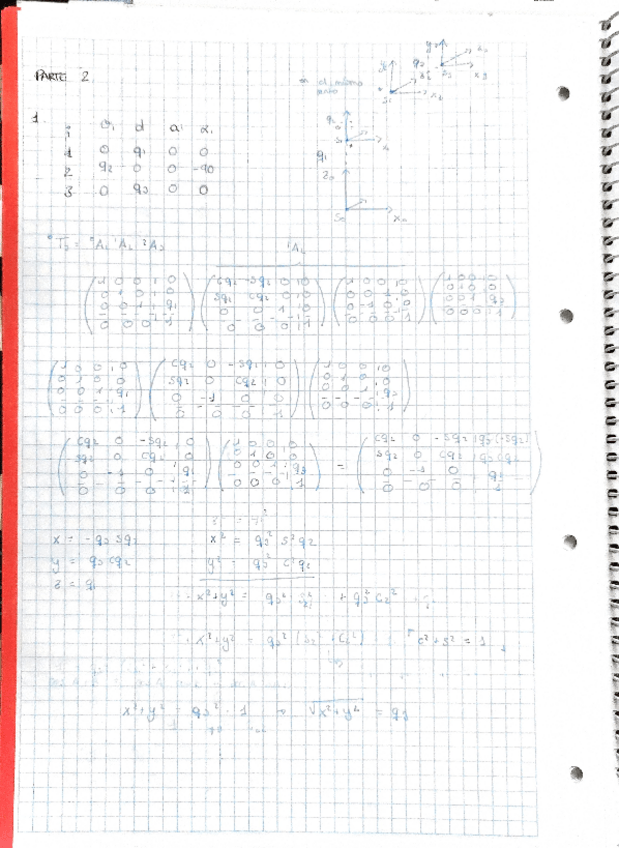 PARTE 2
1.
i θi d a αi
1 0 q1 0 0
2 q2 0 0 -90
3 0 q3 0 0
z0
S0
x0
q1
⁰T3 = ⁰A1 ¹A2 ²A3
¹A2
1 0 0 0
0 1 0 0
0 0 1 q1
0 0 0 1
cq2 -sq2 0 0
sq2 cq2 0 0
0 0 1 0
0 0 0 1
1 0 0 0
0 0 1 0
0 -1 0 0
0 0 0 1
1 0 0 0
0 1 0 0
0 0 1 q3
0 0 0 1
1 0 0 0
0 1 0 0
0 0 1 q1
0 0 0 1
cq2 0 -sq2 0
sq2 0 cq2 0
0 -1 0 0
0 0 0 1
1 0 0 0
0 1 0 0
0 0 1 q3
0 0 0 1
cq2 0 -sq2 0
sq2 0 cq2 0
0 -1 0 q1
0 0 0 1
1 0 0 0
0 1 0 0
0 0 1 q3
0 0 0 1
=
cq2 0 -sq2 q3(-sq2)
sq2 0 cq2 q3 cq2
0 -1 0
0 0 0 1
x = -q3 sq2 x² = q3² s²q2
y = q3 cq2 y² = q3² c²q2
z = q1
x²+y² = q3² s2² + q3² c2²
x²+y² = q3² (s2² + c2²) c²+s² = 1
x²+y² = q3² · 1 → √x²+y² = q3